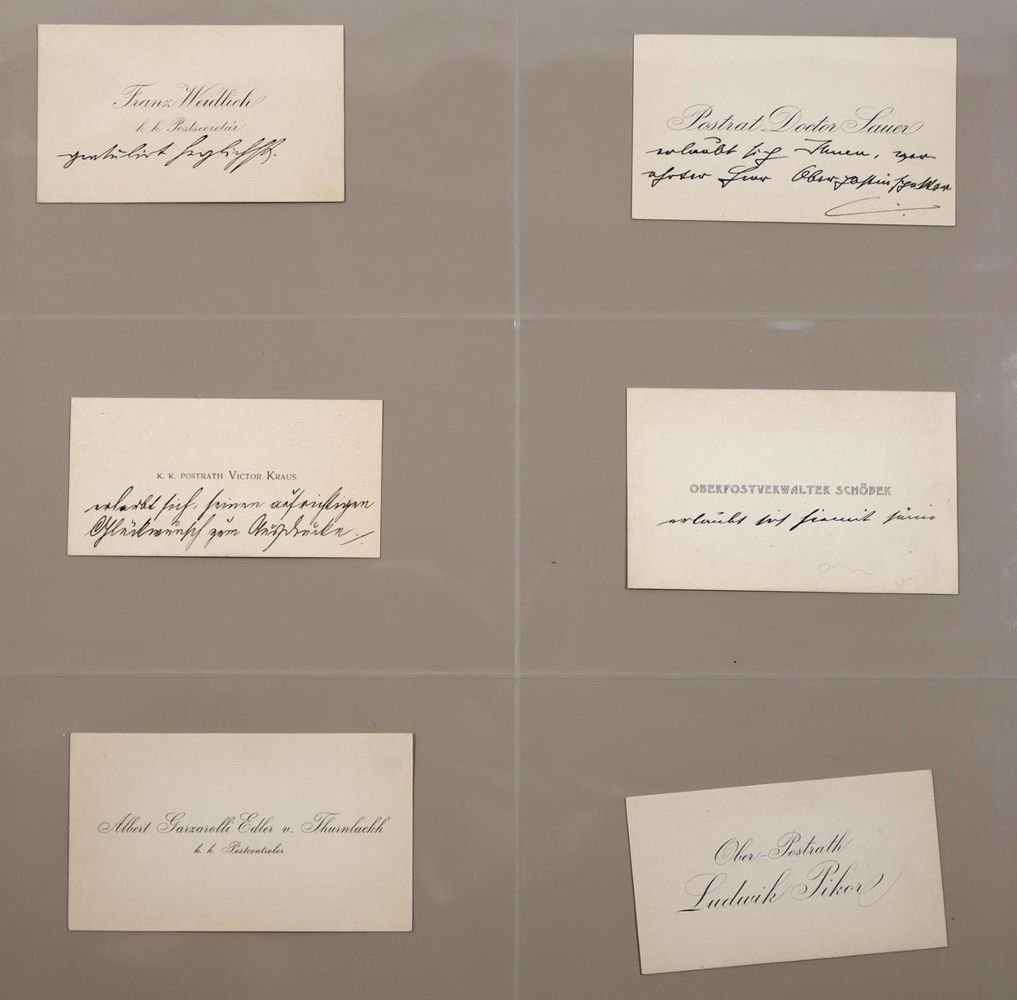 Franz Weidlich
k. k. Postsecretär
gratulirt herzlichst.
Postrat Doctor Sauer
erlaubt sich Ihnen, ver-
ehrter Herr Oberpostinspektor
K. K. POSTRATH VICTOR KRAUS
erlaubt sich, seinen aufrichtigen
Glückwunsch zum Ausdrucke
OBERPOSTVERWALTER SCHÖBEK
erlaubt sich hiemit seine
Albert Garzarolli Edler v. Thurnlackh
k. k. Postcontrolor
Ober-Postrath
Ludwik Pikor